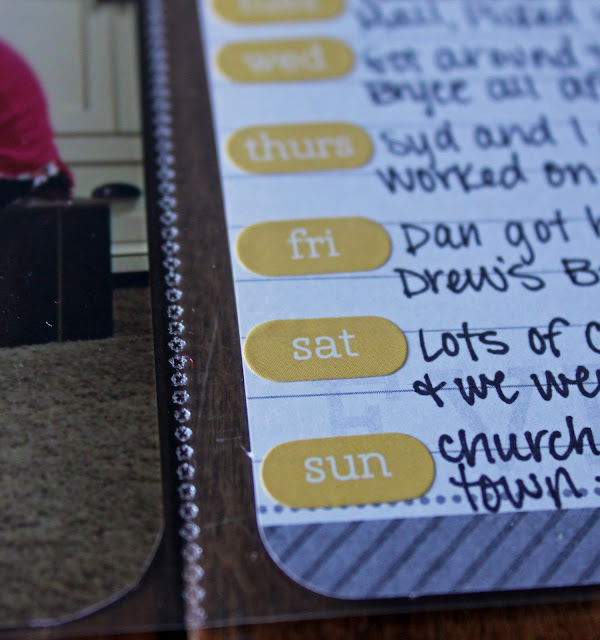 tues
wed Got around
Bryce all af
thurs Syd and I
worked on
fri Dan got h
Drew's B
sat Lots of c
& we wer
sun church
town.